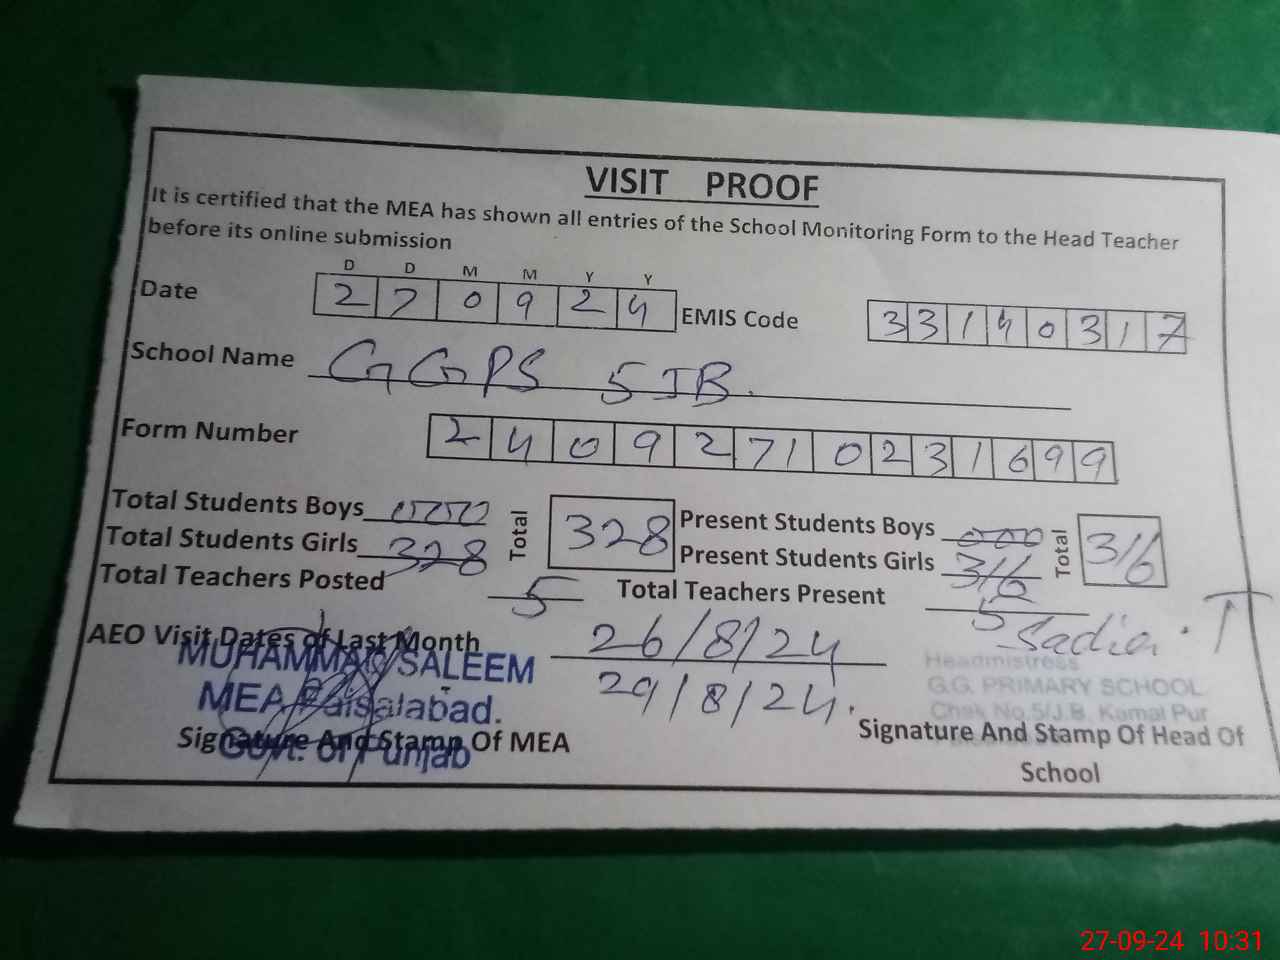 VISIT PROOF
It is certified that the MEA has shown all entries of the School Monitoring Form to the Head Teacher
before its online submission
D D M M Y Y
Date 2 7 0 9 2 4 EMIS Code 3 3 1 4 0 3 1 7
School Name GGPS 5JB.
Form Number 2 4 0 9 2 7 1 0 2 3 1 6 9 9
Total Students Boys 000 Total 328 Present Students Boys 000 Total 316
Total Students Girls 328 Present Students Girls 316
Total Teachers Posted 5 Total Teachers Present 5
AEO Visit Dates of Last Month 26/8/24
29/8/24.
Sadia . T
MUHAMMAD SALEEM
MEA Faisalabad.
Govt. of Punjab
Signature And Stamp Of MEA
Headmistress
G.G. PRIMARY SCHOOL
Chak No.5/J.B. Kamal Pur
Signature And Stamp Of Head Of
School
27-09-24 10:31